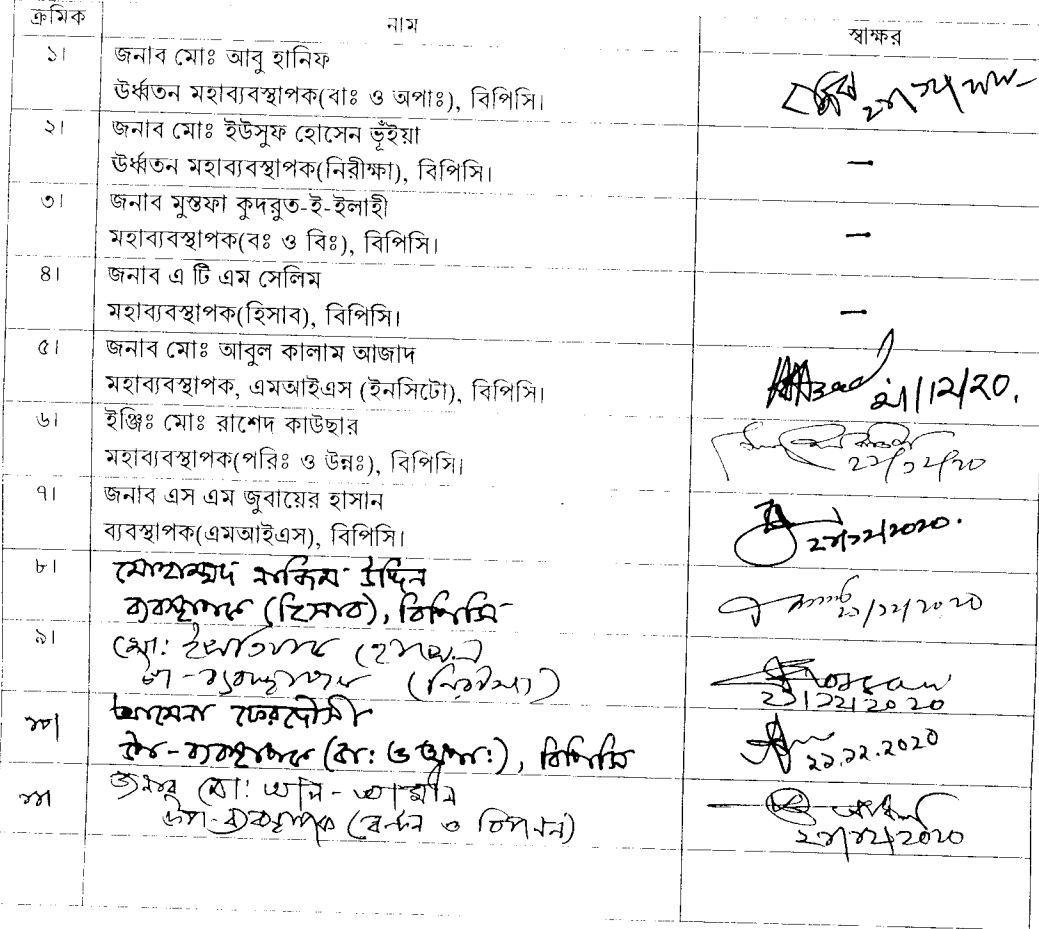 ক্রমিক নাম স্বাক্ষর
১। জনাব মোঃ আবু হানিফ
উর্ধ্বতন মহাব্যবস্থাপক(বাঃ ও অপাঃ), বিপিসি।
২। জনাব মোঃ ইউসুফ হোসেন ভূঁইয়া
উর্ধ্বতন মহাব্যবস্থাপক(নিরীক্ষা), বিপিসি। —
৩। জনাব মুস্তফা কুদরুত-ই-ইলাহী
মহাব্যবস্থাপক(বঃ ও বিঃ), বিপিসি। —
৪। জনাব এ টি এম সেলিম
মহাব্যবস্থাপক(হিসাব), বিপিসি। —
৫। জনাব মোঃ আবুল কালাম আজাদ
মহাব্যবস্থাপক, এমআইএস (ইনসিটো), বিপিসি। 21/12/20.
৬। ইঞ্জিঃ মোঃ রাশেদ কাউছার
মহাব্যবস্থাপক(পরিঃ ও উন্নঃ), বিপিসি।
৭। জনাব এস এম জুবায়ের হাসান
ব্যবস্থাপক(এমআইএস), বিপিসি।
৮। মোহাম্মদ উদ্দিন
ব্যবস্থাপক (হিসাব), বিপিসি
৯। মো: হোসেন
উপ-ব্যবস্থাপক (নিরীক্ষা)
১০। আমেনা ফেরদৌসী
উপ-ব্যবস্থাপক (বা: ও অপা:), বিপিসি
১১। জনাব মো: আল-আমীন
উপ-ব্যবস্থাপক (বন্টন ও বিপণন)